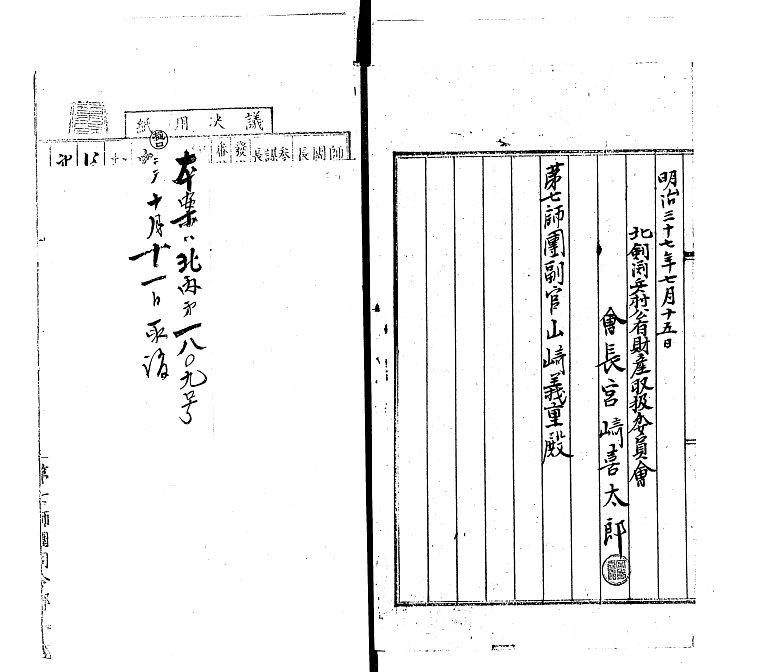 明治三十七年七月十五日
北剣淵兵村公有財産取扱委員會
會長宮崎喜太郎
第七師團副官山崎義重殿
議決用紙
師團長
参謀長
本案ハ北丙第一八〇九号
十月十一日
第七師團司令部